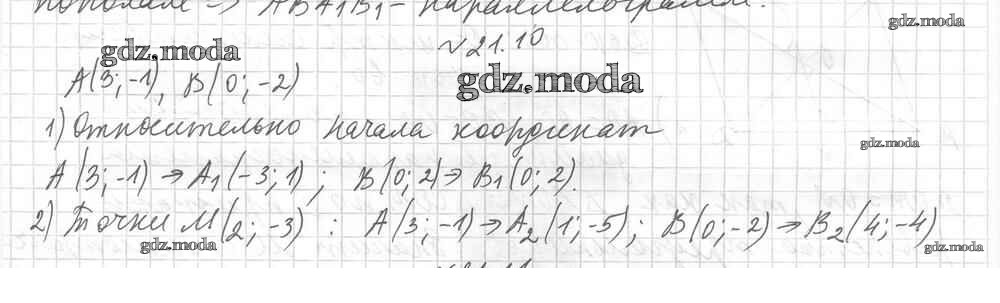 пополам => ABA₁B₁ - параллелограмм.
gdz.moda
№21.10
gdz.moda
gdz.moda
A(3; -1), B(0; -2)
1) Относительно начала координат
gdz.moda
A(3; -1) → A₁(-3; 1); B(0; 2) → B₁(0; 2).
2) Точки M(2; -3) : A(3; -1) → A₂(1; -5); B(0; -2) → B₂(4; -4)
gdz.moda
gdz.moda